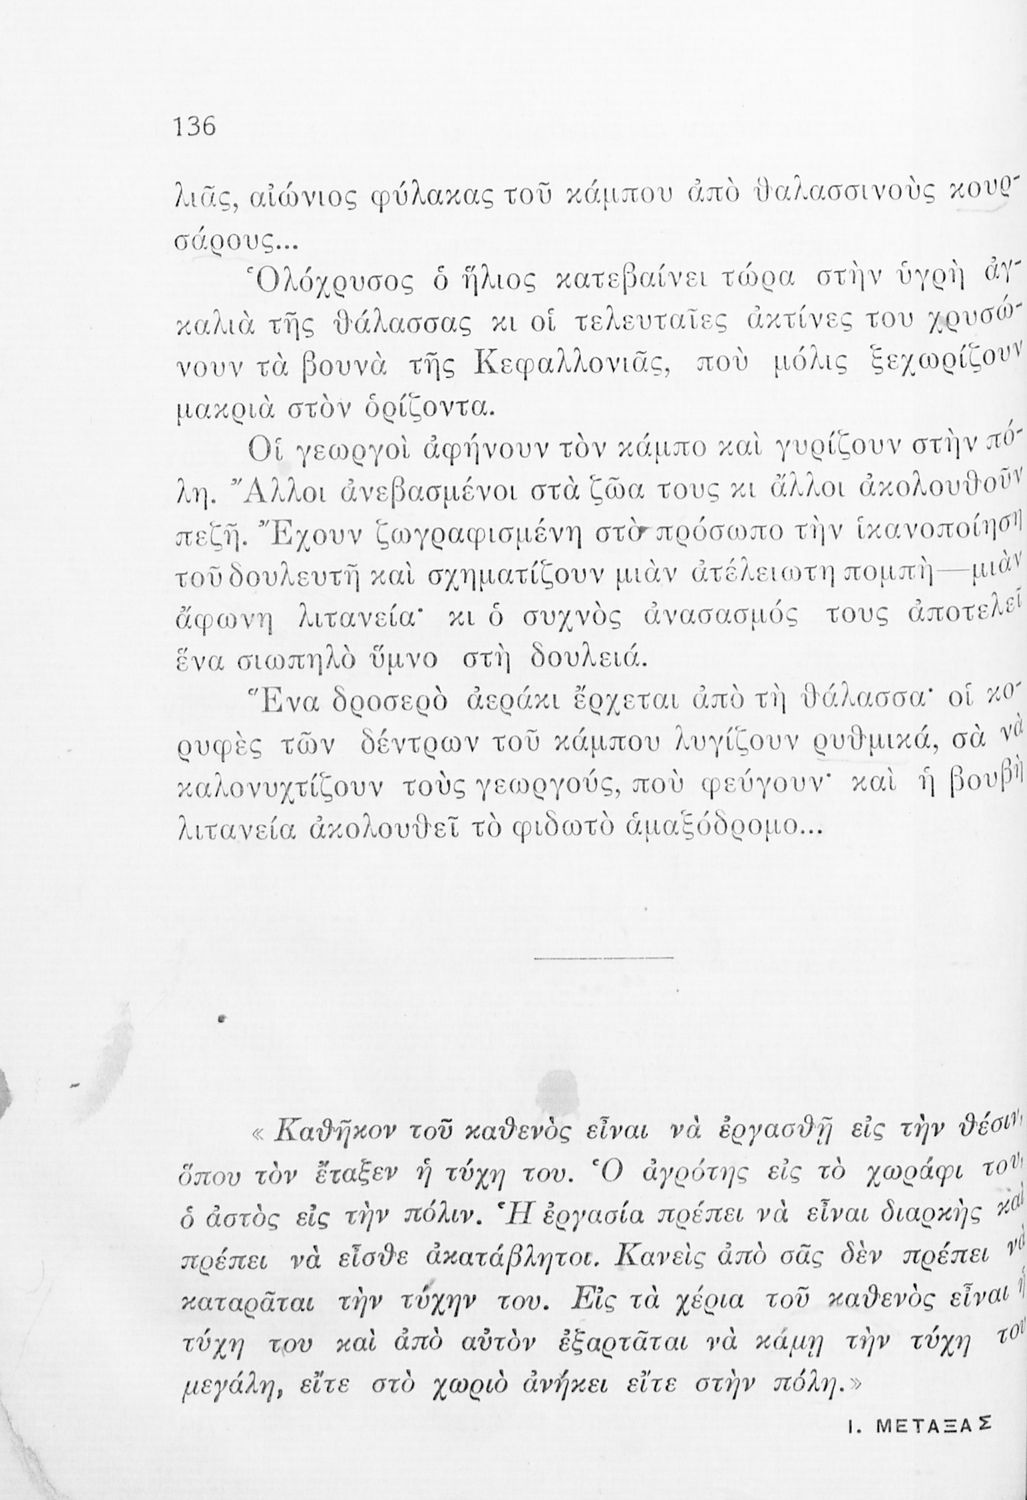 136
λιᾶς, αἰώνιος φύλακας τοῦ κάμπου ἀπὸ θαλασσινοὺς κουρ-
σάρους...
Ὁλόχρυσος ὁ ἥλιος κατεβαίνει τώρα στὴν ὑγρὴ ἀγ-
καλιὰ τῆς θάλασσας κι οἱ τελευταῖες ἀκτίνες του χρυσώ-
νουν τὰ βουνὰ τῆς Κεφαλλονιᾶς, ποὺ μόλις ξεχωρίζουν
μακριὰ στὸν ὁρίζοντα.
Οἱ γεωργοὶ ἀφήνουν τὸν κάμπο καὶ γυρίζουν στὴν πό-
λη. Ἄλλοι ἀνεβασμένοι στὰ ζῶα τους κι ἄλλοι ἀκολουθοῦν
πεζῆ. Ἔχουν ζωγραφισμένη στὸ πρόσωπο τὴν ἱκανοποίηση
τοῦ δουλευτῆ καὶ σχηματίζουν μιὰν ἀτέλειωτη πομπὴ—μιὰν
ἄφωνη λιτανεία· κι ὁ συχνὸς ἀνασασμός τους ἀποτελεῖ
ἕνα σιωπηλὸ ὕμνο στὴ δουλειά.
Ἕνα δροσερὸ ἀεράκι ἔρχεται ἀπὸ τὴ θάλασσα· οἱ κο-
ρυφὲς τῶν δέντρων τοῦ κάμπου λυγίζουν ρυθμικά, σὰ νὰ
καλονυχτίζουν τοὺς γεωργούς, ποὺ φεύγουν· καὶ ἡ βουβὴ
λιτανεία ἀκολουθεῖ τὸ φιδωτὸ ἁμαξόδρομο...
« Καθῆκον τοῦ καθενὸς εἶναι νὰ ἐργασθῇ εἰς τὴν θέσιν,
ὅπου τὸν ἔταξεν ἡ τύχη του. Ὁ ἀγρότης εἰς τὸ χωράφι του,
ὁ ἀστὸς εἰς τὴν πόλιν. Ἡ ἐργασία πρέπει νὰ εἶναι διαρκὴς καὶ
πρέπει νὰ εἶσθε ἀκατάβλητοι. Κανεὶς ἀπὸ σᾶς δὲν πρέπει νὰ
καταρᾶται τὴν τύχην του. Εἰς τὰ χέρια τοῦ καθενὸς εἶναι ἡ
τύχη του καὶ ἀπὸ αὐτὸν ἐξαρτᾶται νὰ κάμῃ τὴν τύχη του
μεγάλη, εἴτε στὸ χωριὸ ἀνήκει εἴτε στὴν πόλη.»
Ι. ΜΕΤΑΞΑΣ